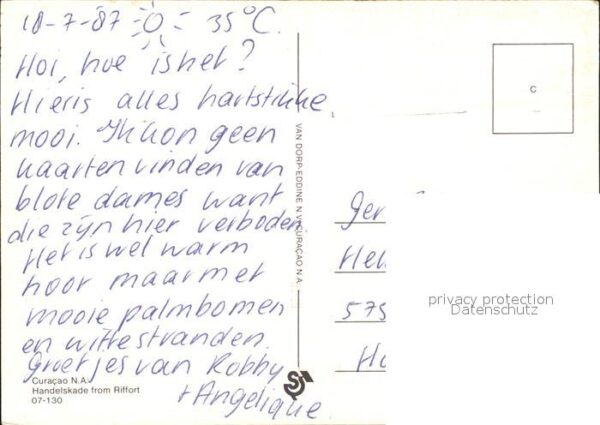 18-7-87 35°C.
Hoi, hoe is het?
Hier is alles hartstikke
mooi. Ik kon geen
kaarten vinden van
blote dames want
die zijn hier verboden.
Het is wel warm
hoor maar met
mooie palmbomen
en witte stranden.
Groetjes van Robby
+ Angelique
Curaçao N.A.
Handelskade from Riffort
07-130
VAN DORP-EDDINE N.V. CURAÇAO N.A.
C
Ger
575
privacy protection
Datenschutz